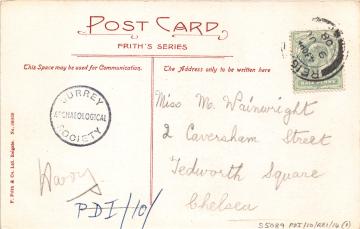 POST CARD
FRITH'S SERIES
This Space may be used for Communication.
The Address only to be written here
SURREY
ARCHAEOLOGICAL
SOCIETY
Miss M. Wainwright
2 Caversham Street
Tedworth Square
Chelsea
Harry
PDI/10/
F. Frith & Co. Ltd. Reigate.
S5089 PDI/10/REI/16 (1)